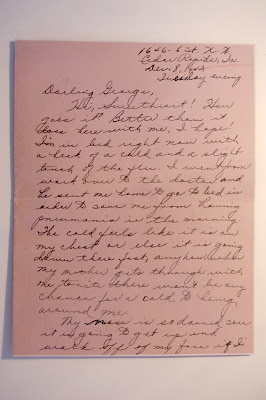 1626-6 St. N.W.
Cedar Rapids, Ia.
Dec. 8, 1942
Tuesday evening
Darling George,
Hi, Sweetheart! How
goes it? Better than it
does here with me, I hope!
I'm in bed right now with
a heck of a cold and a slight
touch of the flu. I went from
work over to the doctor and
he sent me home to go to bed in
order to save me from having
pneumonia in the morning.
The cold feels like it is on
my chest or else it is going
down there fast, anyhow when
my mother gets through with
me tonite there won't be any
chance for a cold to hang
around me.
My nose is so darned sore
it is going to get up and
walk off of my face if I